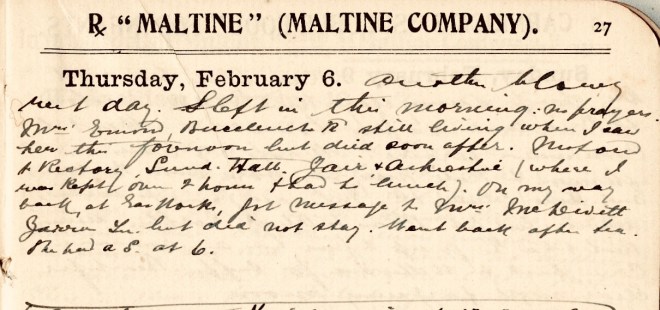 ℞ "MALTINE" (MALTINE COMPANY). 27
Thursday, February 6. Another blowy
wet day. Slept in this morning: no prayers.
Mrs. Buccleuch St still living when I saw
her this forenoon but died soon after.
to Rectory, Sund. Hall, Fair & (where I
was kept over 2 hours & had to lunch). On my way
back, at got message to Mrs. McDevitt
but did not stay. Went back after tea.
She had a at 6.